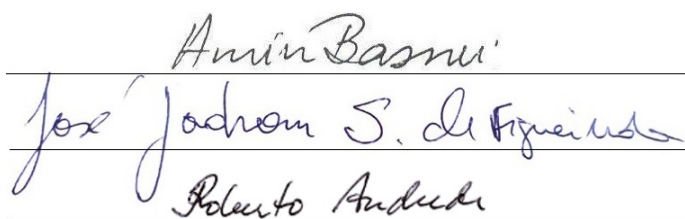 Amin Bassrei
José Jadsom S. de Figueiredo
Roberto Andrade